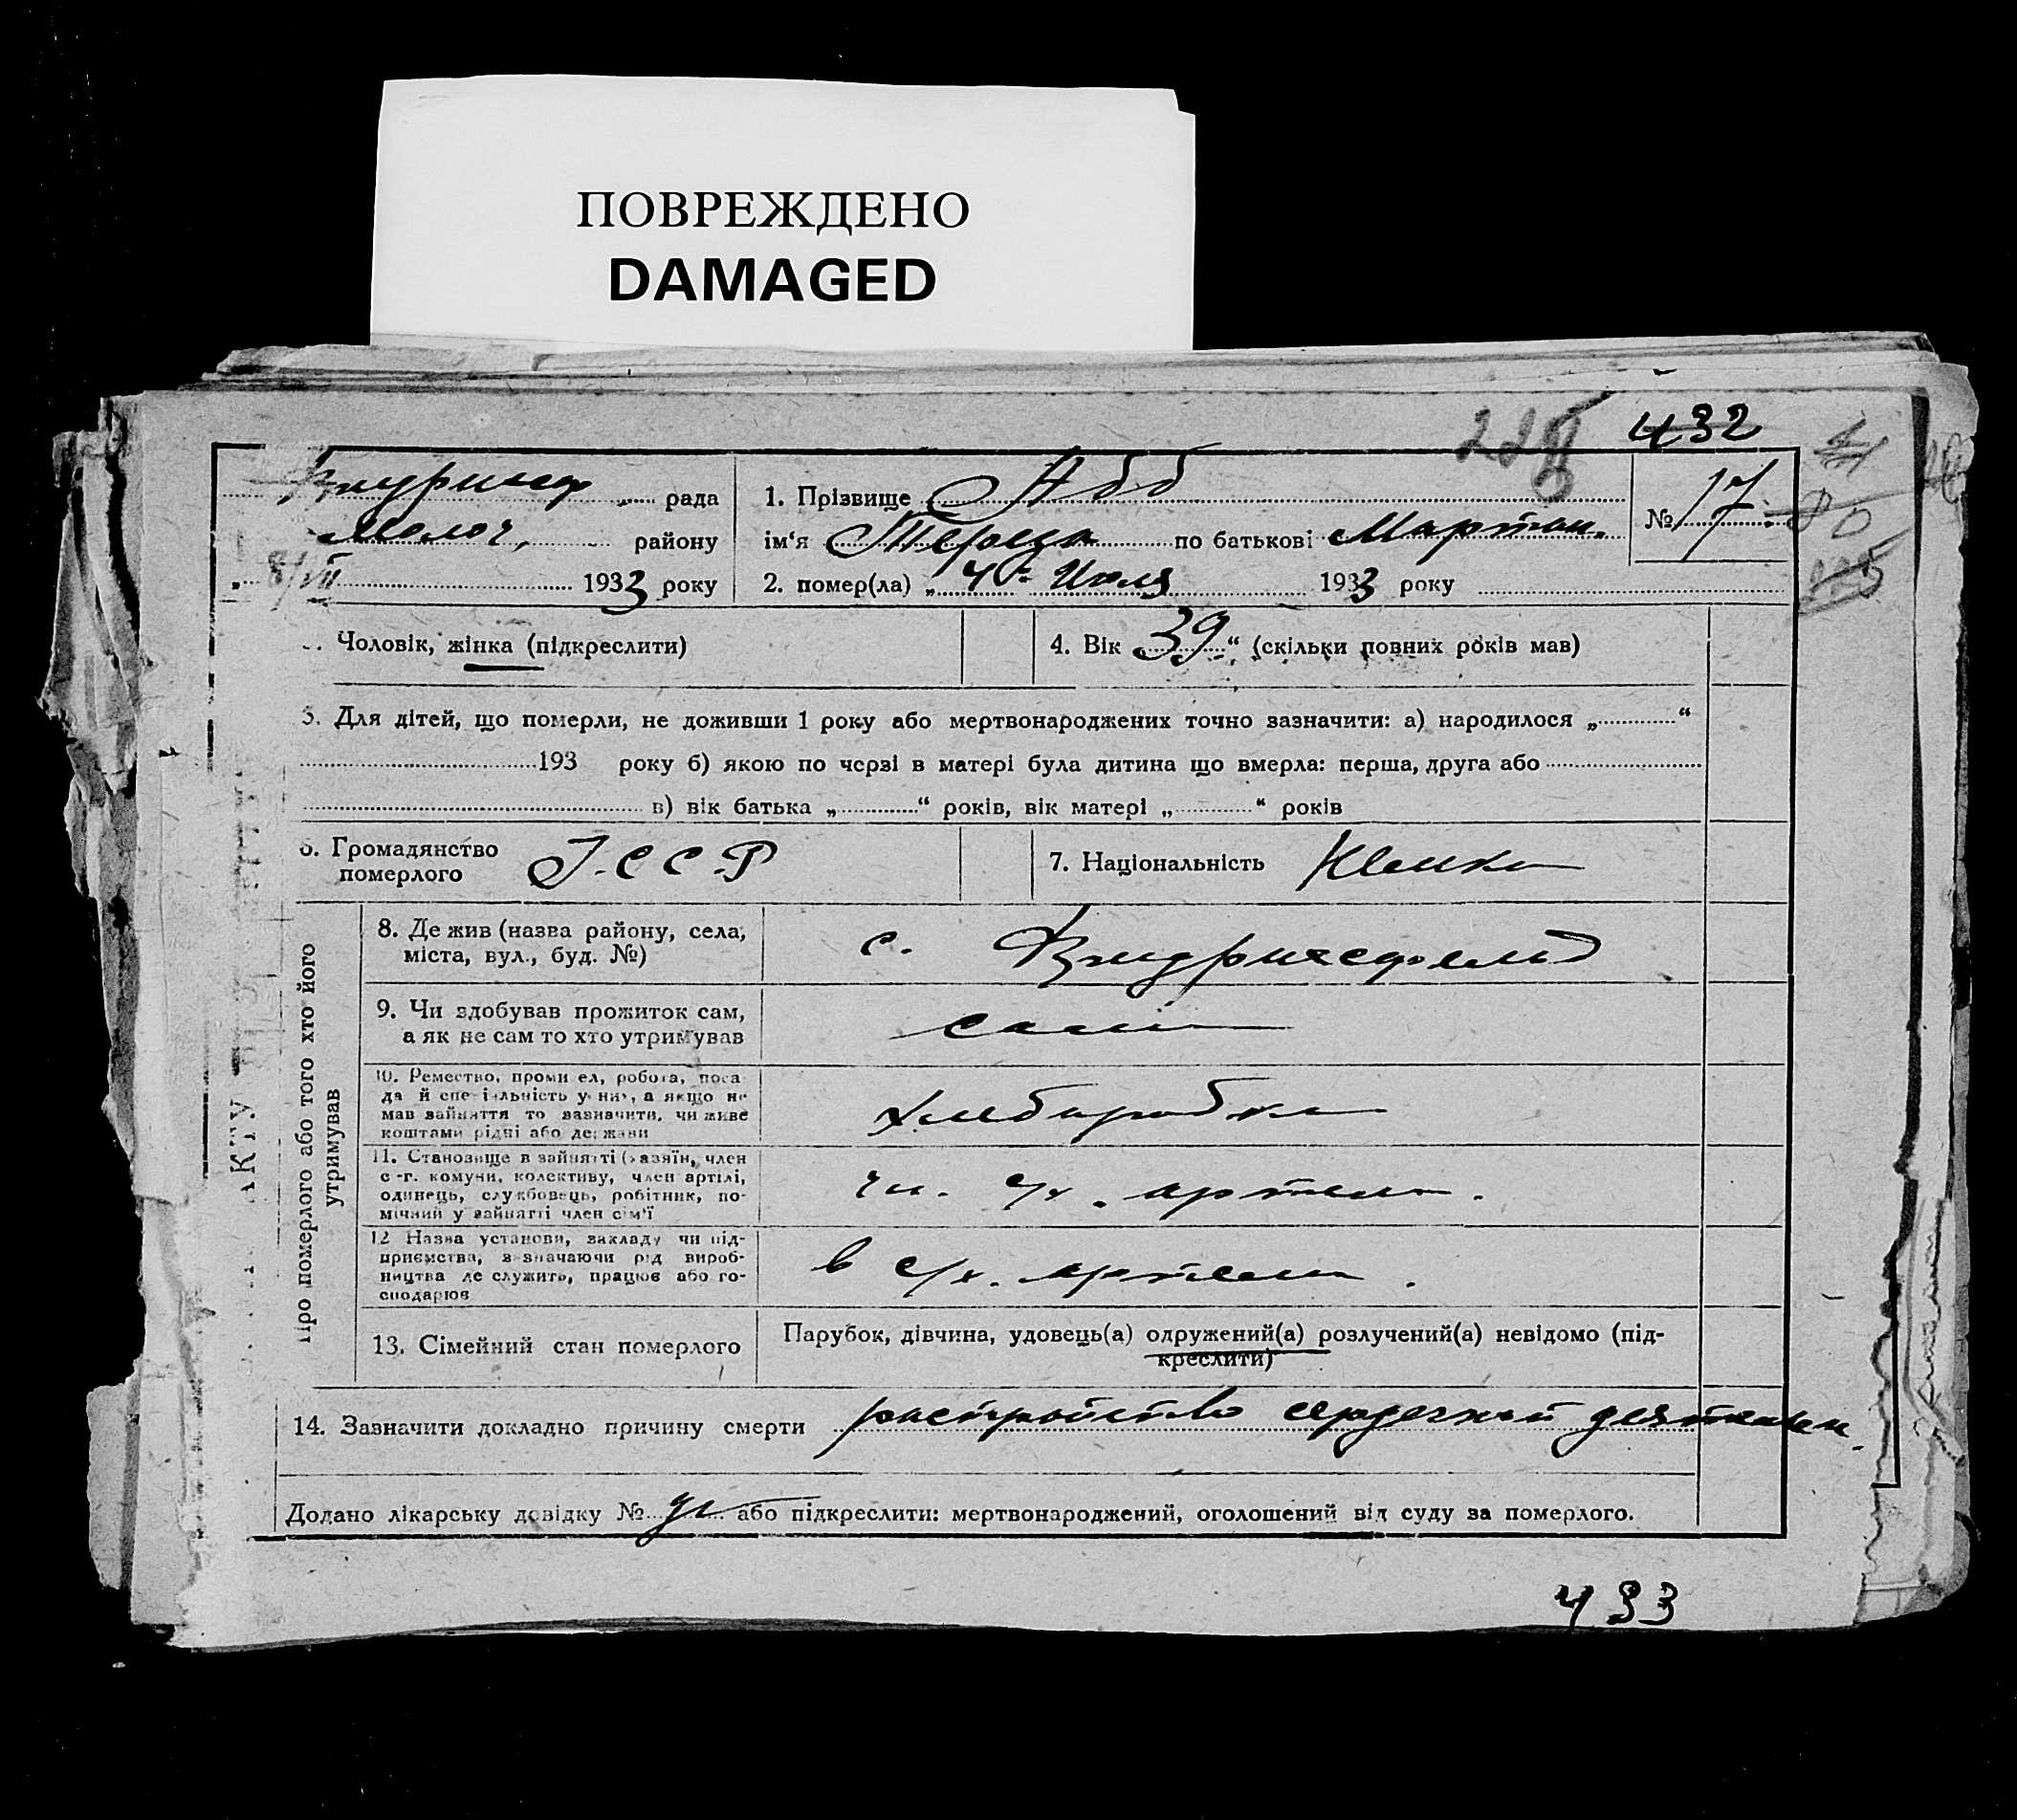 ПОВРЕЖДЕНО
DAMAGED
432
рада
Молоч, району
8/VII 1933 року
1. Прізвище Абб
ім'я Тереза по батькові Мартын.
2. помер(ла) „ 4го Июля 1933 року
№ 17
Чоловік, жінка (підкреслити)
4. Вік 39 “ (скільки повних років мав)
5. Для дітей, що померли, не доживши 1 року або мертвонароджених точно зазначити: а) народилося „ “
193 року б) якою по черзі в матері була дитина що вмерла: перша, друга або
в) вік батька „ “ років, вік матері „ “ років
6. Громадянство
померлого
С С Р
7. Національність Немка
АКТУ
Про померлого або того хто його
утримував
8. Де жив (назва району, села,
міста, вул., буд. №)
с.
9. Чи здобував прожиток сам,
а як не сам то хто утримував
сама
10. Ремество, проми ел, робота, поса
да й спеціяльність у них, а якщо не
мав зайняття то зазначити, чи живе
коштами рідні або держави
хлеборобка
11. Становище в зайнятті (хазяїн, член
с.-г. комуни, колективу, член артілі,
одинець, службовець, робітник, по-
мічний у зайнятті член сім'ї
чл. с/х. артели.
12 Назва установи, закладу чи під-
приємства, зазначаючи рід вироб-
ництва де служить, працює або го-
сподарює
в с/х. артели.
13. Сімейний стан померлого
Парубок, дівчина, удовець(а) одружений(а) розлучений(а) невідомо (під-
креслити)
14. Зазначити докладно причину смерти расстройство сердечной деятельн.
Додано лікарську довідку № або підкреслити: мертвонароджений, оголошений від суду за померлого.
433